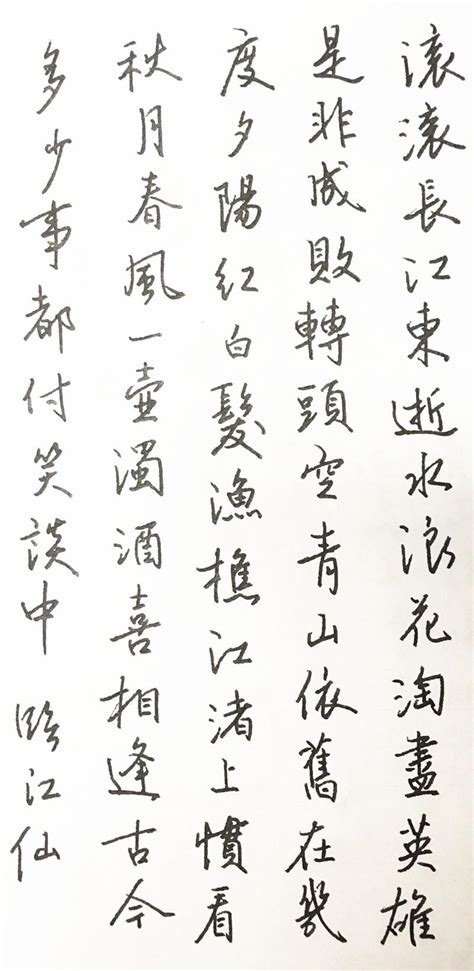 滾滾長江東逝水浪花淘盡英雄
是非成敗轉頭空青山依舊在幾
度夕陽紅白髮漁樵江渚上慣看
秋月春風一壺濁酒喜相逢古今
多少事都付笑談中 臨江仙